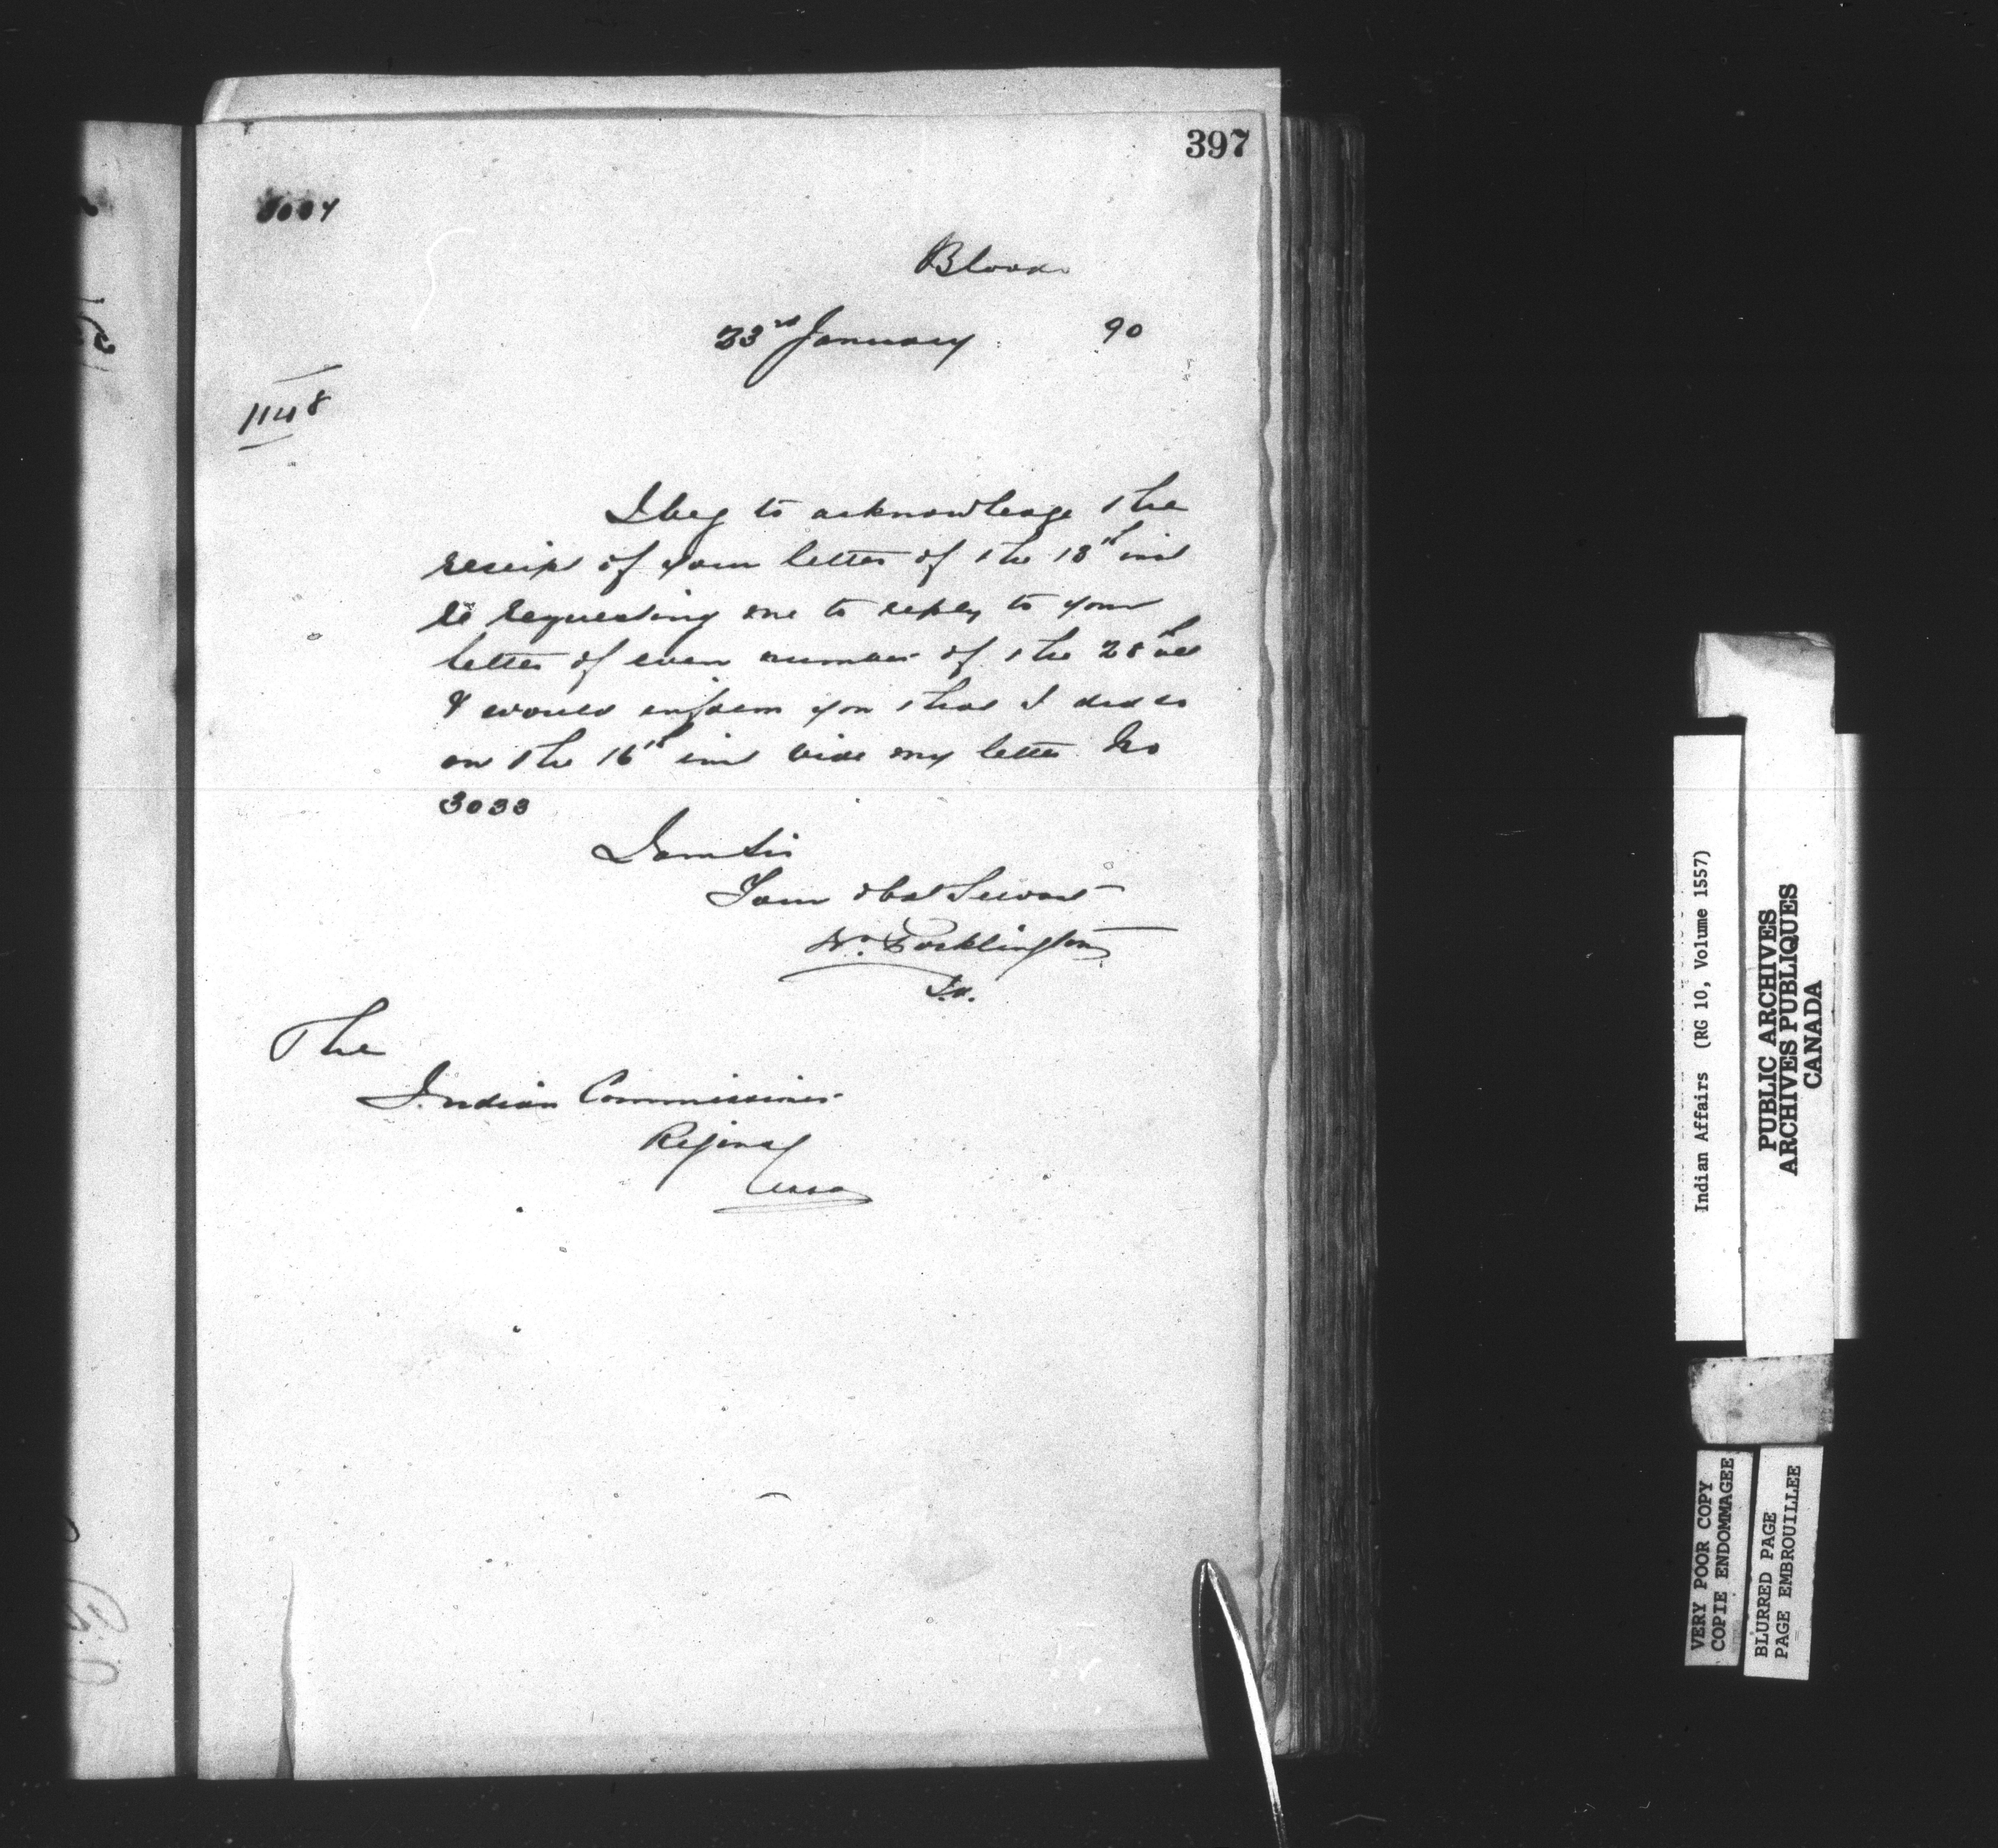 397
Blood
23rd January 90
1148
I beg to acknowledge the
receipt of your letter of the 18th inst
requesting me to reply to your
letter of even number of the 28th ult
& would inform you that I did so
on the 16th inst vide my letter No
3033
I am Sir
Your obdt Servant
Wm Pocklington
The
Indian Commissioner
Regina
Assa
Indian Affairs (RG 10, Volume 1557)
PUBLIC ARCHIVES
ARCHIVES PUBLIQUES
CANADA
VERY POOR COPY
COPIE ENDOMMAGEE
BLURRED PAGE
PAGE EMBROUILLEE